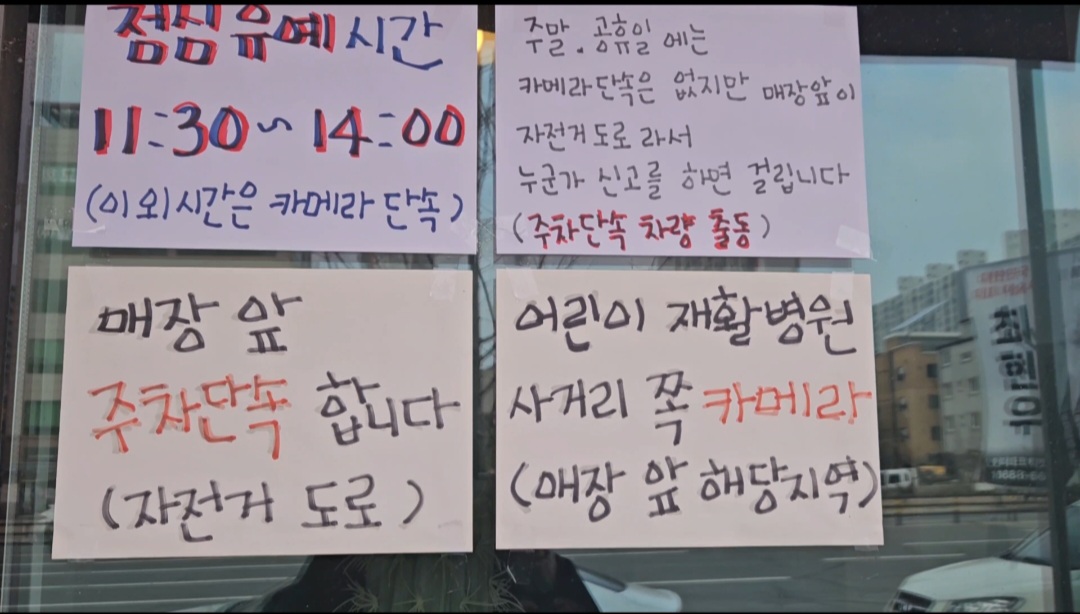 점심유예시간
11:30~14:00
(이외시간은 카메라 단속)
주말.공휴일에는
카메라단속은 없지만 매장앞이
자전거도로라서
누군가 신고를 하면 걸립니다
(주차단속 차량 출동)
매장 앞
주차단속 합니다
(자전거 도로)
어린이 재활병원
사거리 쪽 카메라
(매장 앞 해당지역)